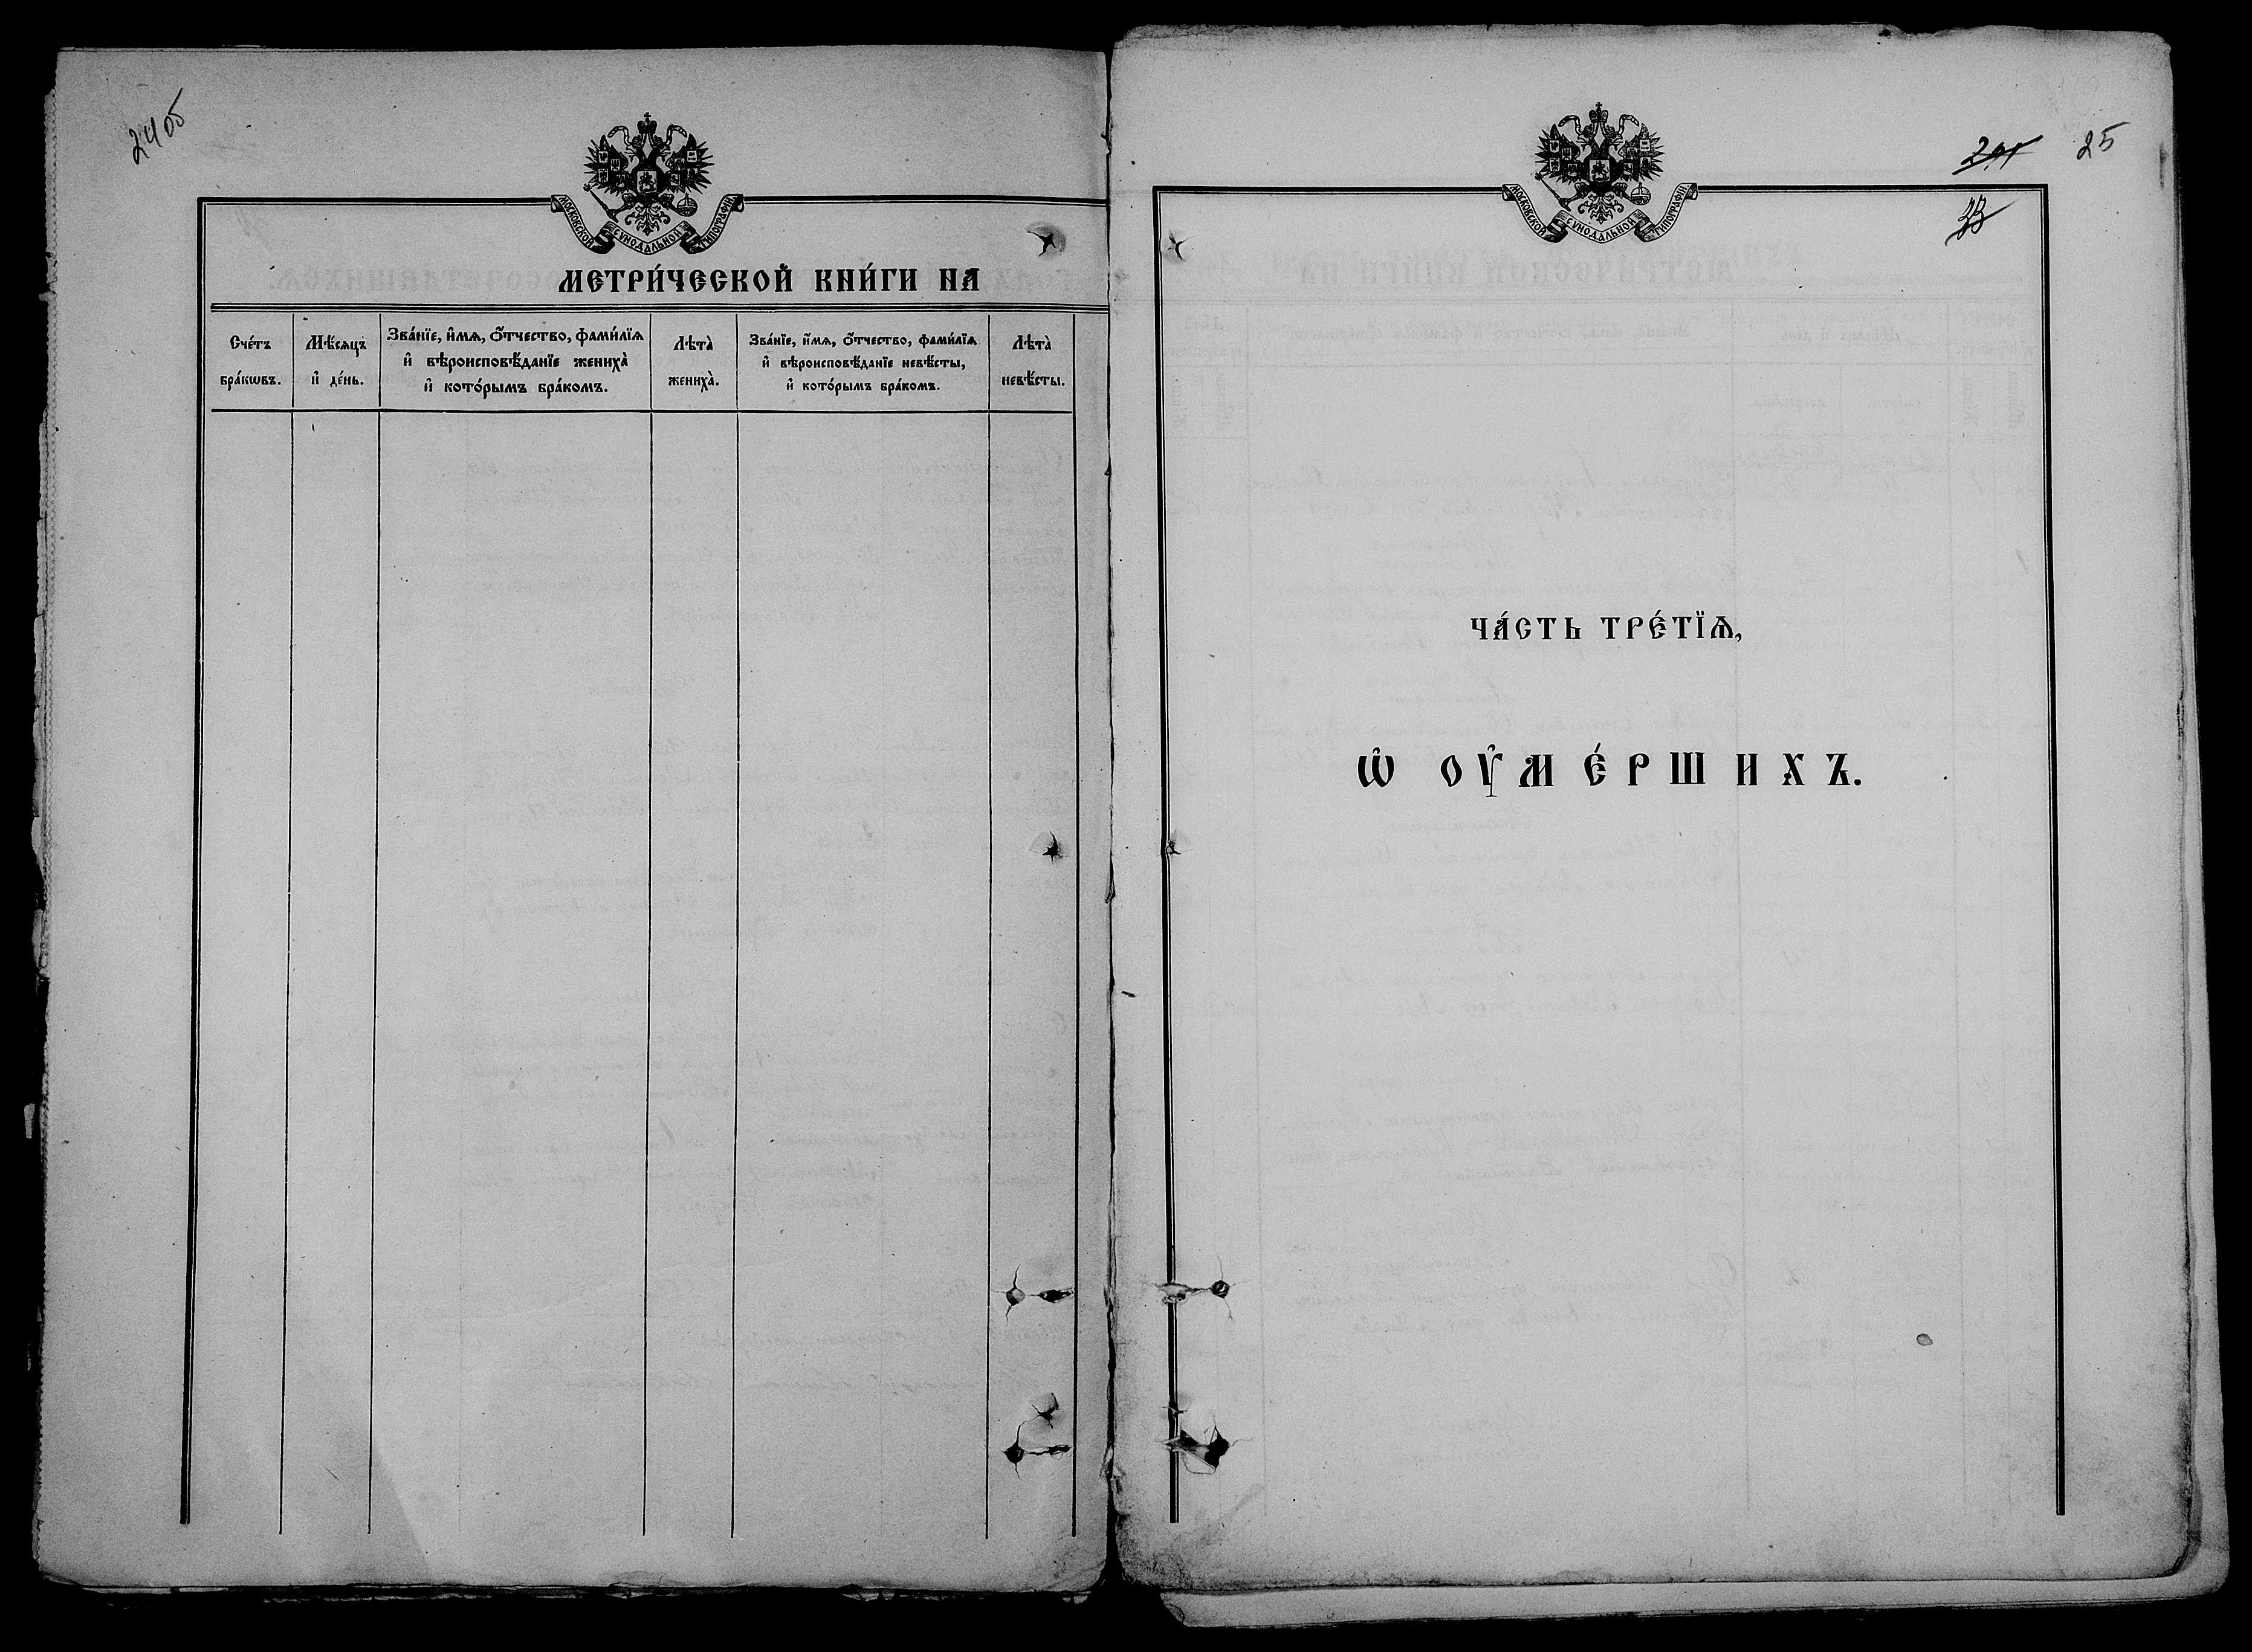 24об
МОСКОВСКОЙ СѴНОДАЛЬНОЙ ТИПОГРАФІИ
МЕТРИ́ЧЕСКОЙ КНИ́ГИ НА
Сче́тъ бра́кѡвъ.
Мѣ́сяцъ и҆ де́нь.
Зва́нїе, и҆́мѧ, ѻ҆́тчество, фами́лїѧ
и҆ вѣроисповѣ́данїе жениха̀
и҆ кото́рымъ бра́комъ.
Лѣта̀ жениха̀.
Зва́нїе, и҆́мѧ, ѻ҆́тчество, фами́лїѧ
и҆ вѣроисповѣ́данїе невѣ́сты,
и҆ кото́рымъ бра́комъ.
Лѣта̀ невѣ́сты.
25
33
МОСКОВСКОЙ СѴНОДАЛЬНОЙ ТИПОГРАФІИ
ЧА́СТЬ ТРЕ́ТЇѦ,
Ѡ҆ ОУ҆МЕ́РШИХЪ.